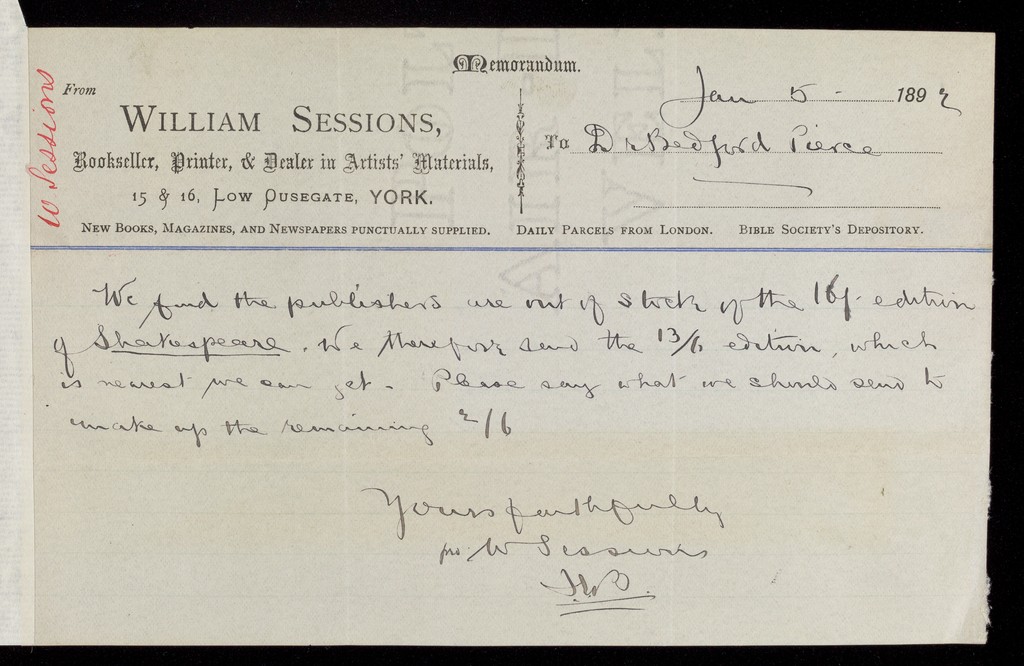 W Sessions
Memorandum.
From
WILLIAM SESSIONS,
Bookseller, Printer, & Dealer in Artists' Materials,
15 & 16, LOW OUSEGATE, YORK.
Jan 5 - 1892
To Dr Bedford Pierce
NEW BOOKS, MAGAZINES, AND NEWSPAPERS PUNCTUALLY SUPPLIED. DAILY PARCELS FROM LONDON. BIBLE SOCIETY'S DEPOSITORY.
We find the publishers are out of stock of the 16/- edition
of Shakespeare. We therefore send the 13/6 edition, which
is nearest we can get - Please say what we should send to
make up the remaining 2/6
Yours faithfully
pro W Sessions
H.B.